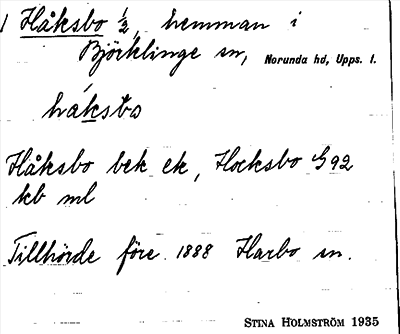 Håksbo 1/2, hemman i
Björklinge sn, Norunda hd, Upps. l.
håksbo
Håksbo bek ek, Hocksbo G92
kb ml
Tillhörde före 1888 Harbo sn.
STINA HOLMSTRÖM 1935